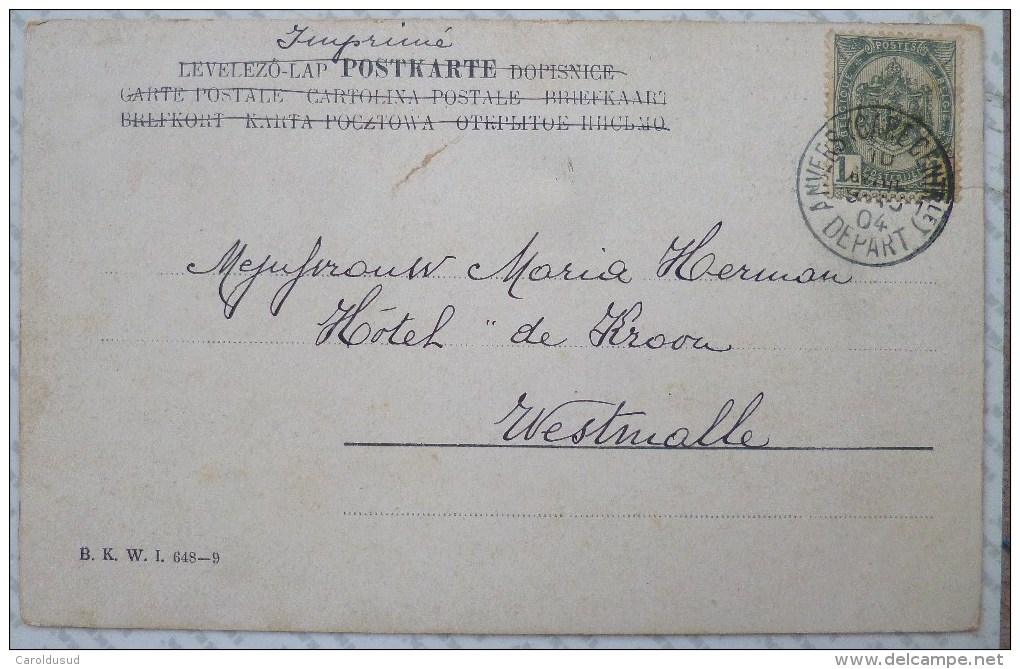 Imprimé
LEVELEZŐ-LAP POSTKARTE DOPISNICE
CARTE POSTALE CARTOLINA POSTALE BRIEFKAART
BREFKORT KARTA POCZTOWA ОТКРЫТОЕ ПИСЬМО
POSTES
BELGIQUE BELGIE
1
ANVERS (GARE CENTRALE)
10
04
DEPART
Mejufvrouw Maria Herman
Hôtel " de Kroon
Westmalle
B. K. W. I. 648—9
Caroldusud
www.delcampe.net